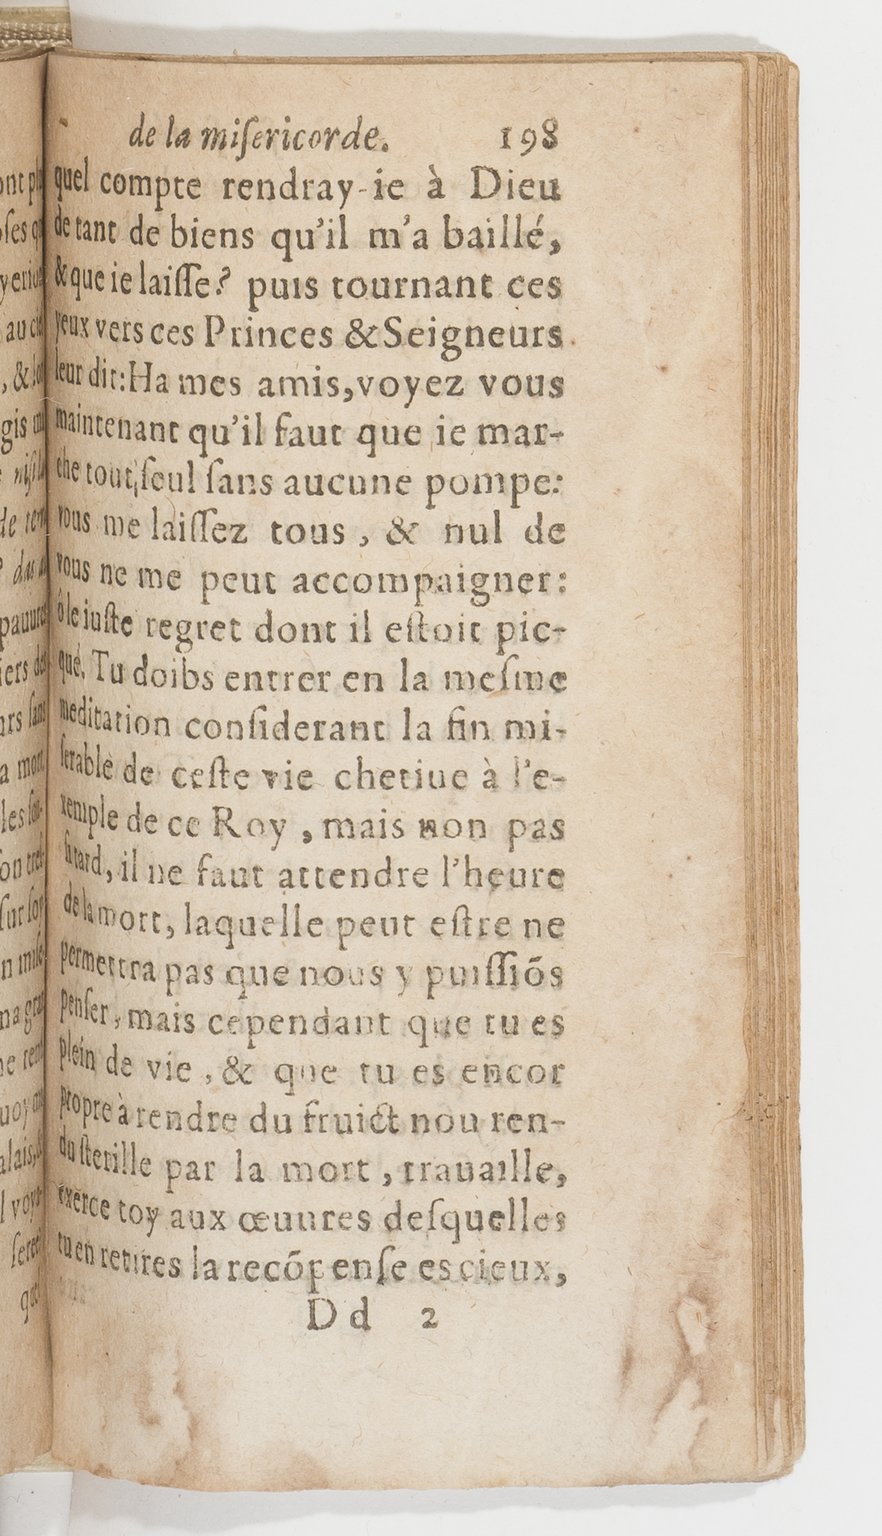 de la miſericorde. 198
quel compte rendray-ie à Dieu
de tant de biens qu'il m'a baillé,
& que ie laiſſe? puis tournant ces
yeux vers ces Princes & Seigneurs
leur dit: Ha mes amis, voyez vous
maintenant qu'il faut que ie mar-
che tout ſeul ſans aucune pompe:
vous me laiſſez tous, & nul de
vous ne me peut accompaigner:
ô le iuſte regret dont il eſtoit pic-
qué. Tu doibs entrer en la meſme
meditation conſiderant la fin mi-
ſerable de ceſte vie chetiue à l'e-
xemple de ce Roy, mais non pas
ſi tard, il ne faut attendre l'heure
de la mort, laquelle peut eſtre ne
permettra pas que nous y puiſſiõs
penſer, mais cependant que tu es
plein de vie, & que tu es encor
propre à rendre du fruict nou ren-
du ſterille par la mort, trauaille,
exerce toy aux œuures deſquelles
tu en retires la recõpenſe es cieux,
Dd 2